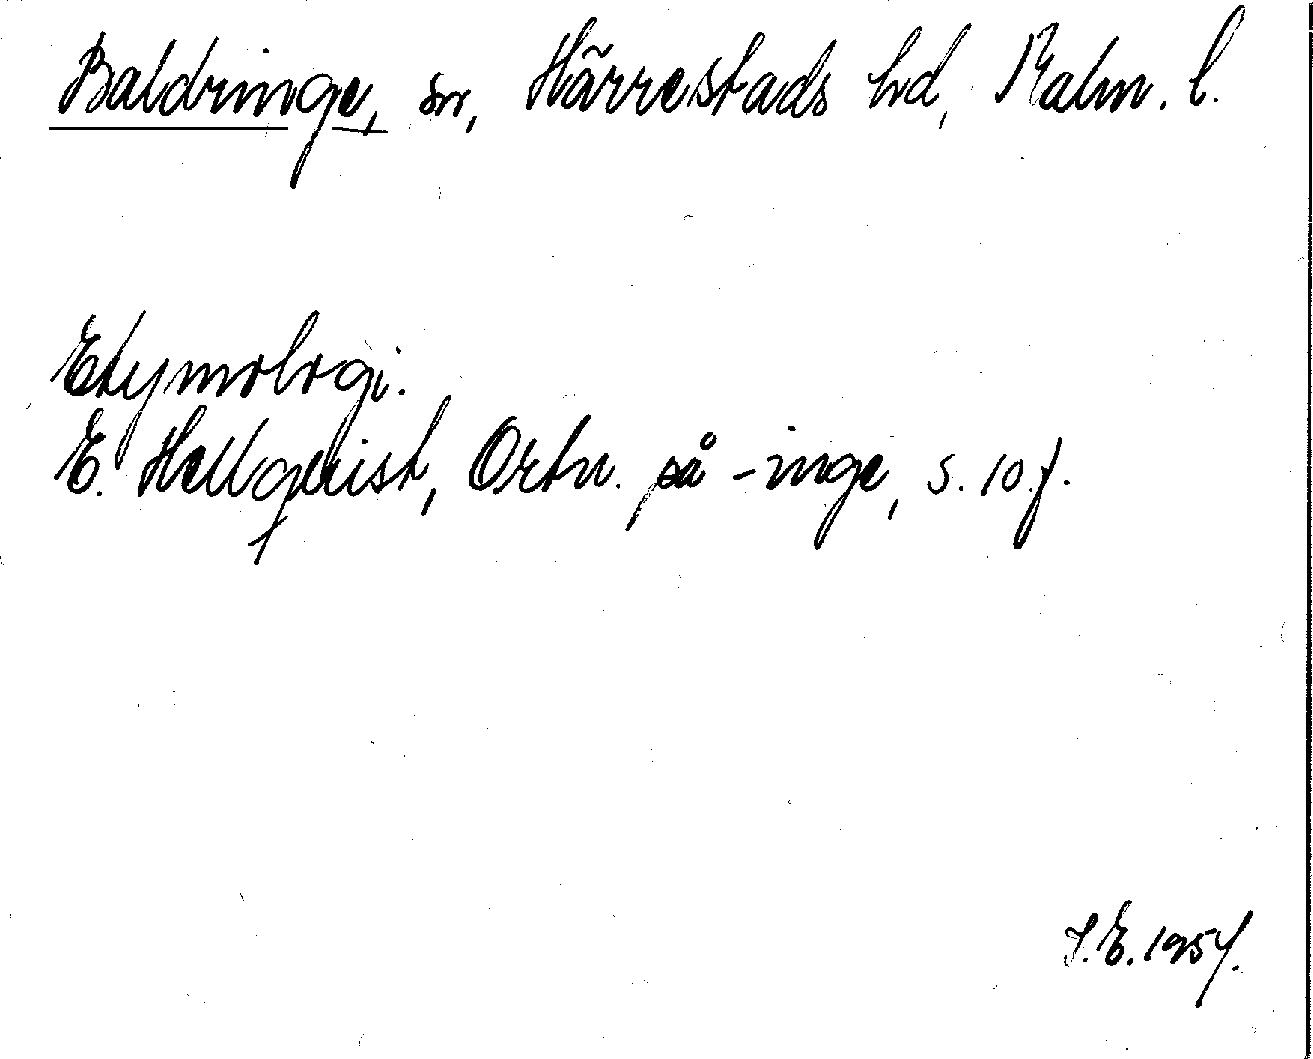 Baldringe, sn, Härrestads hd, Malm. l.
Etymologi.
E. Hellquist, Ortn. på -inge, s. 10 f.
J.E. 1957.